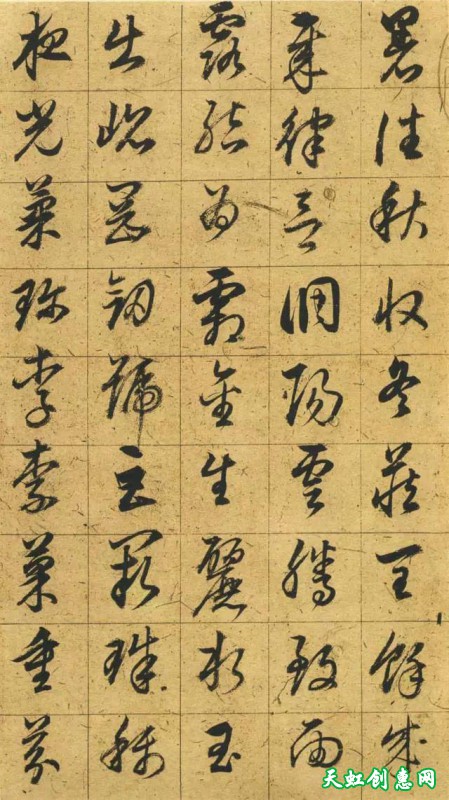 暑往秋收冬藏閏餘成
歲律呂調陽雲騰致雨
露結為霜金生麗水玉
出崑岡劍號巨闕珠稱
夜光菓珍李柰菜重芥
天虹创惠网